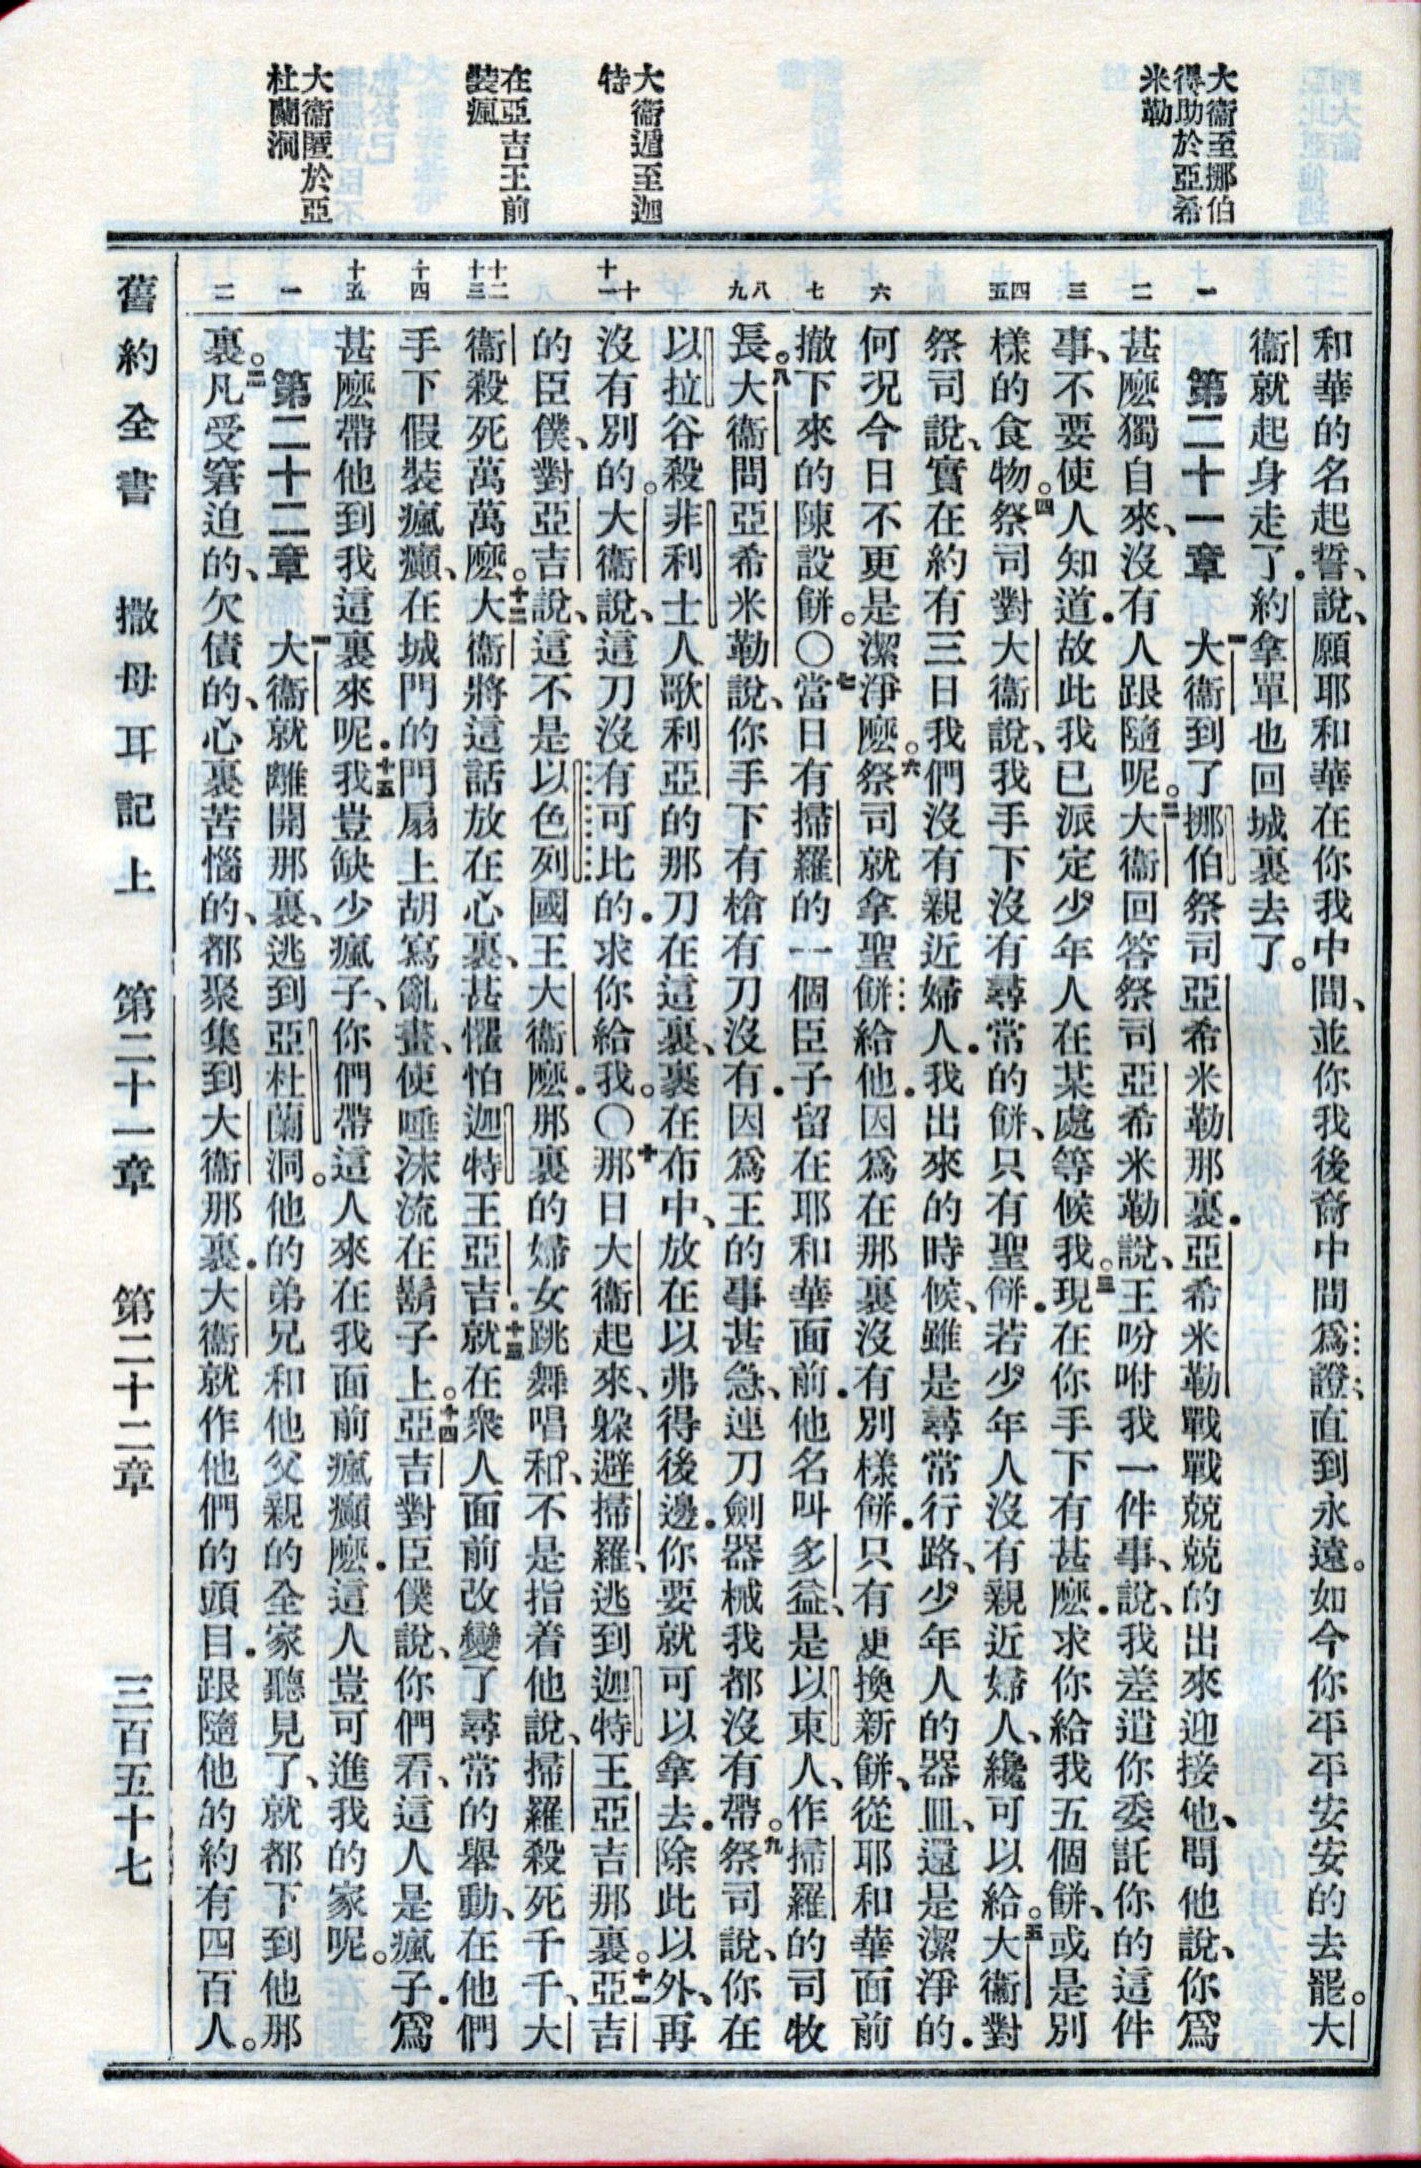 大衞至挪伯
得助於亞希
米勒
大衞遁至迦
特
在亞吉王前
裝瘋
大衞匿於亞
杜蘭洞
和華的名起誓、說、願耶和華在你我中間、並你我後裔中間爲證、直到永遠。如今你平平安安的去罷。大
衞就起身走了．約拿單也回城裏去了。
第二十一章 一大衞到了挪伯祭司亞希米勒那裏．亞希米勒戰戰兢兢的出來迎接他、問他說、你爲
甚麽獨自來、沒有人跟隨呢。二大衞回答祭司亞希米勒說、王吩咐我一件事、說、我差遣你委託你的這件
事、不要使人知道．故此我已派定少年人在某處等候我。三現在你手下有甚麽．求你給我五個餅、或是別
樣的食物。四祭司對大衞說、我手下沒有尋常的餅、只有聖餅．若少年人沒有親近婦人、纔可以給。五大衞對
祭司說、實在約有三日我們沒有親近婦人．我出來的時候、雖是尋常行路、少年人的器皿、還是潔淨的．
何況今日不更是潔淨麽。六祭司就拿聖餅給他．因爲在那裏沒有別樣餅．只有更換新餅、從耶和華面前
撤下來的陳設餅。〇七當日有掃羅的一個臣子留在耶和華面前．他名叫多益、是以東人、作掃羅的司牧
長。八大衞問亞希米勒說、你手下有槍有刀沒有．因爲王的事甚急、連刀劍器械我都沒有帶。九祭司說、你在
以拉谷殺非利士人歌利亞的那刀在這裏、裹在布中、放在以弗得後邊．你要就可以拿去．除此以外、再
沒有別的。大衞說、這刀沒有可比的．求你給我。〇十那日大衞起來、躱避掃羅、逃到迦特王亞吉那裏。十一亞吉
的臣僕、對亞吉說、這不是以色列國王大衞麽．那裏的婦女跳舞唱和、不是指着他說、掃羅殺死千千、大
衞殺死萬萬麽。十二大衞將這話放在心裏、甚懼怕迦特王亞吉．十三就在衆人面前改變了尋常的舉動、在他們
手下假裝瘋癲、在城門的門扇上胡寫亂畫、使唾沫流在鬍子上。十四亞吉對臣僕說、你們看、這人是瘋子．爲
甚麽帶他到我這裏來呢．十五我豈缺少瘋子、你們帶這人來在我面前瘋癲麽．這人豈可進我的家呢。
第二十二章 一大衞就離開那裏、逃到亞杜蘭洞。他的弟兄和他父親的全家聽見了、就都下到他那
裏。二凡受窘迫的、欠債的、心裏苦惱的、都聚集到大衞那裏．大衞就作他們的頭目．跟隨他的約有四百人。
一
二
三
四
五
六
七
八
九
十
十一
十二
十三
十四
十五
一
二
舊約全書 撒母耳記上 第二十一章 第二十二章 三百五十七